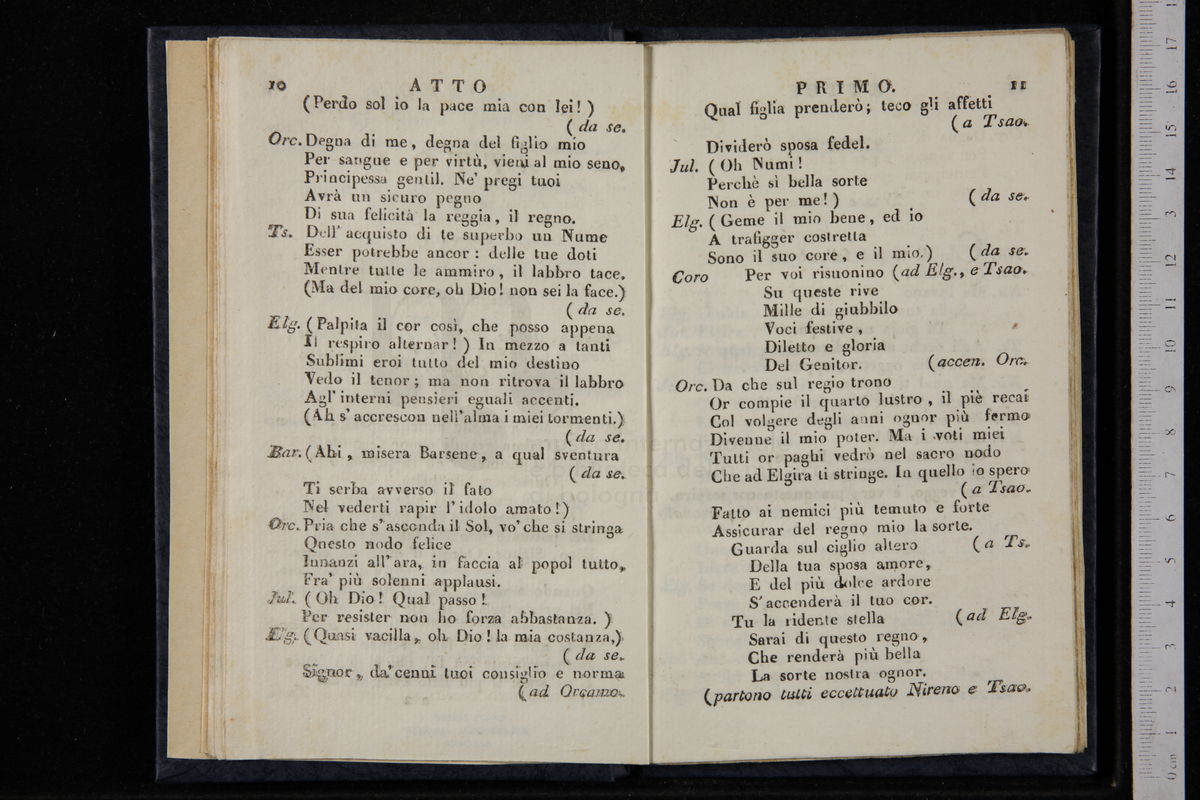 10 ATTO
(Perdo sol io la pace mia con lei! )
( da se.
Orc. Degna di me, degna del figlio mio
Per sangue e per virtù, vieni al mio seno,
Principessa gentil. Ne' pregi tuoi
Avrà un sicuro pegno
Di sua felicità la reggia, il regno.
Ts. Dell' acquisto di te superbo un Nume
Esser potrebbe ancor : delle tue doti
Mentre tutte le ammiro, il labbro tace.
(Ma del mio core, oh Dio! non sei la face.)
( da se.
Elg. (Palpita il cor così, che posso appena
Il respiro alternar! ) In mezzo a tanti
Sublimi eroi tutto del mio destino
Vedo il tenor; ma non ritrova il labbro
Agl' interni pensieri eguali accenti.
(Ah s' accrescon nell'alma i miei tormenti.)
( da se.
Bar. (Ahi, misera Barsene, a qual sventura
( da se.
Ti serba avverso il fato
Nel vederti rapir l'idolo amato!)
Orc. Pria che s'asconda il Sol, vo' che si stringa
Questo nodo felice
Innanzi all' ara, in faccia al popol tutto,
Fra' più solenni applausi.
Jul. ( Oh Dio! Qual passo!
Per resister non ho forza abbastanza. )
Elg. (Quasi vacilla, oh Dio! la mia costanza,)
( da se.
Signor, da' cenni tuoi consiglio e norma
( ad Orcamo.
PRIMO. 11
Qual figlia prenderò; teco gli affetti
( a Tsao.
Dividerò sposa fedel.
Jul. ( Oh Numi!
Perchè sì bella sorte
Non è per me! ) ( da se.
Elg. ( Geme il mio bene, ed io
A trafigger costretta
Sono il suo core, e il mio.) ( da se.
Coro Per voi risuonino (ad Elg., e Tsao.
Su queste rive
Mille di giubbilo
Voci festive,
Diletto e gloria
Del Genitor. (accen. Orc.
Orc. Da che sul regio trono
Or compie il quarto lustro, il piè recai
Col volgere degli anni ognor più fermo
Divenne il mio poter. Ma i voti miei
Tutti or paghi vedrò nel sacro nodo
Che ad Elgira ti stringe. In quello io spero
( a Tsao.
Fatto ai nemici più temuto e forte
Assicurar del regno mio la sorte.
Guarda sul ciglio altero ( a Ts.
Della tua sposa amore,
E del più dolce ardore
S'accenderà il tuo cor.
Tu la ridente stella ( ad Elg.
Sarai di questo regno,
Che renderà più bella
La sorte nostra ognor.
(partono tutti eccettuato Nireno e Tsao.